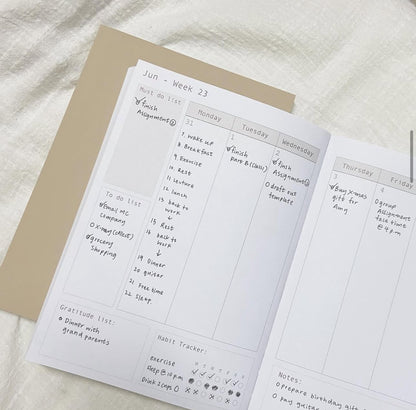 Jun - Week 23
Must do list
finish
Assignment ②
To do list
email MC
company
X-ray (collect)
grocery
shopping
Gratitude list:
Dinner with
grand parents
Monday
31
7. wake up
8. Breakfast
9. Exercise
10. Rest
11. Lecture
12. lunch
13. back to
work
↓
15. Rest
16. back to
work
↓
19. Dinner
20. guitar
21. Free time
22. Sleep
Tuesday
1
finish
Part B (
Wednesday
2
finish
Assignment
draft out
template
Habit Tracker:
M T W T F S S
Exercise
Sleep @ 10pm
Drink 2 cups
Thursday
3
Buy
gift for
Amy
Friday
4
group
Assignment
face time
@ 4pm
Notes:
prepare birthday gift
pay guitar